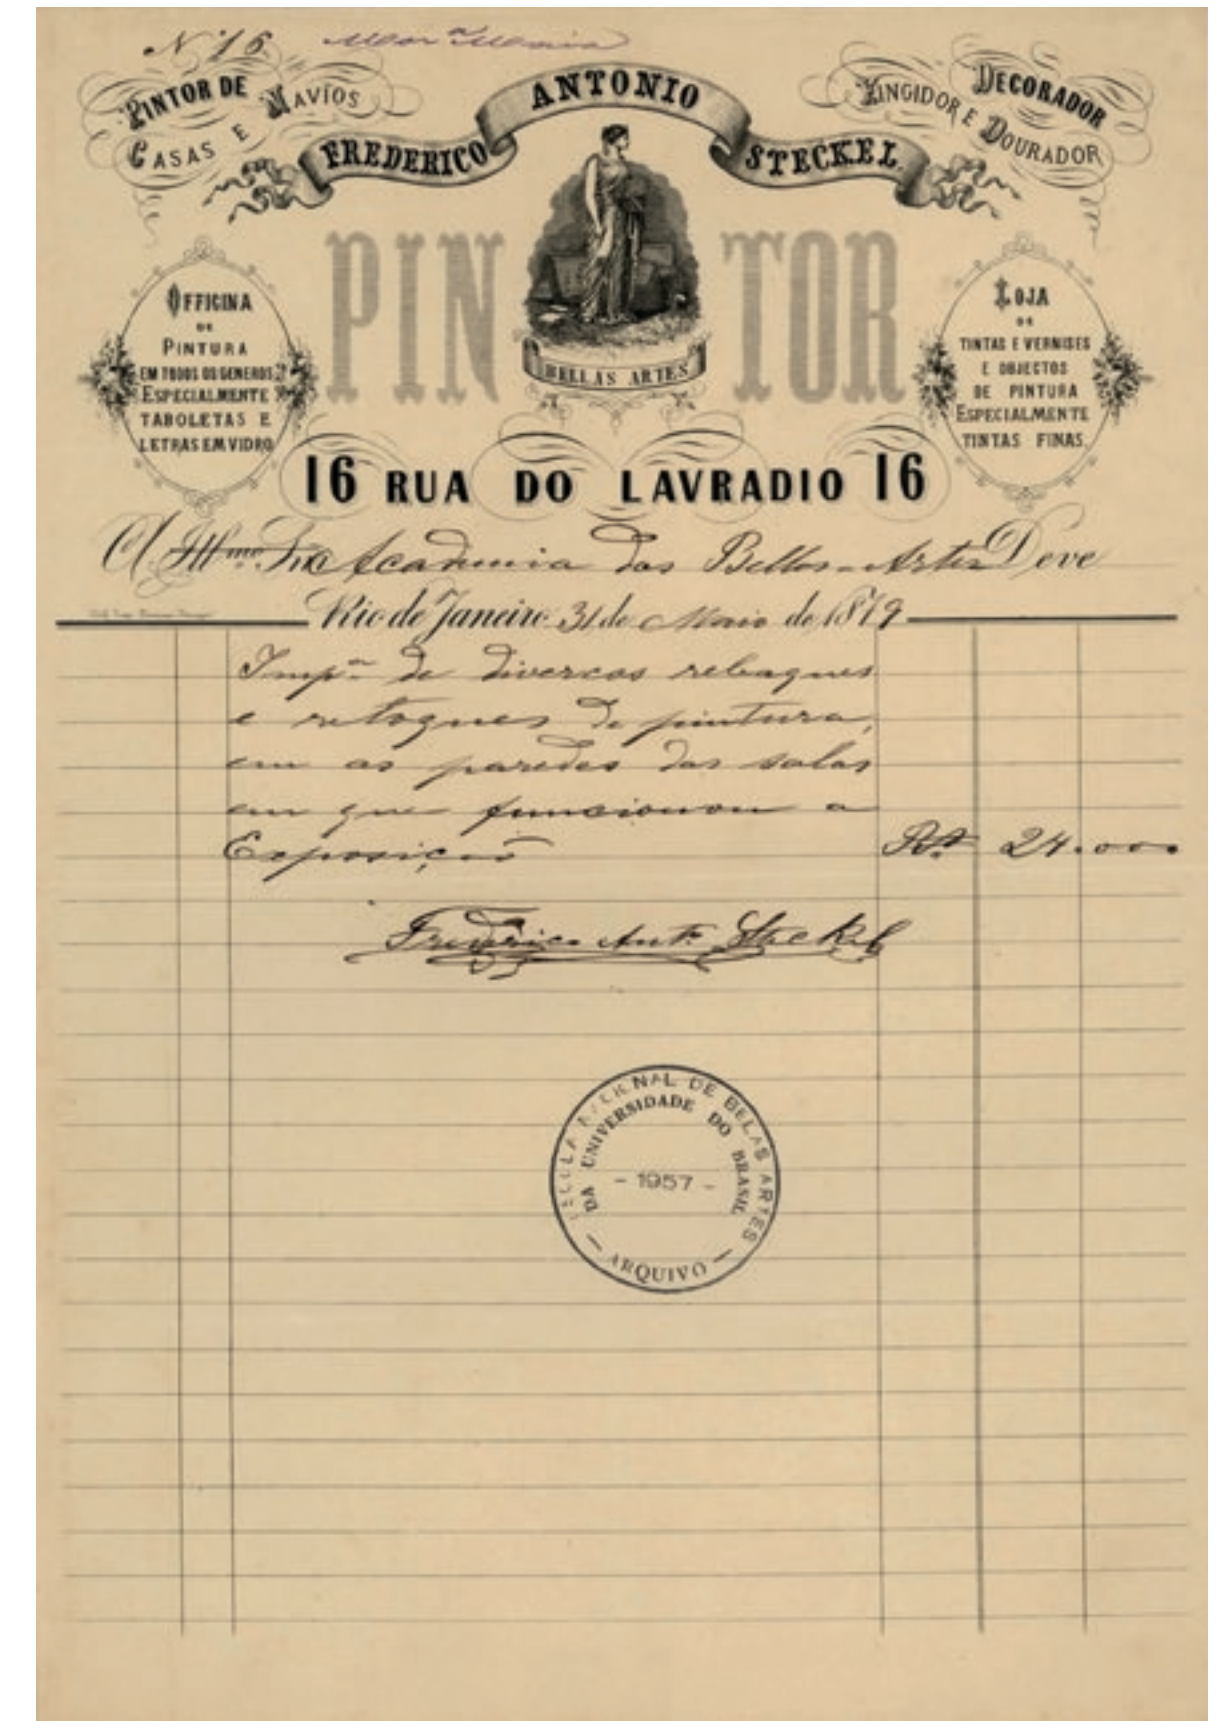 Nº 16
PINTOR DE
CASAS E NAVIOS
FREDERICO ANTONIO STECKEL
DECORADOR
FINGIDOR E DOURADOR
PINTOR
BELLAS ARTES
OFFICINA
DE
PINTURA
EM TODOS OS GENEROS
ESPECIALMENTE
TABOLETAS E
LETRAS EM VIDRO
LOJA
DE
TINTAS E VERNISES
E OBJECTOS
DE PINTURA
ESPECIALMENTE
TINTAS FINAS
16 RUA DO LAVRADIO 16
A Illmo. Academia das Bellas-Artes Deve
Rio de Janeiro 31 de Maio de 1879
Impª de divercos reboques
e retoques de pintura,
em as paredes das salas
em que funcionou a
Exposição Rs 24.000
Frederico Antº Steckel
ESCOLA NACIONAL DE BELAS ARTES
DA UNIVERSIDADE DO BRASIL
- 1957 -
- ARQUIVO -